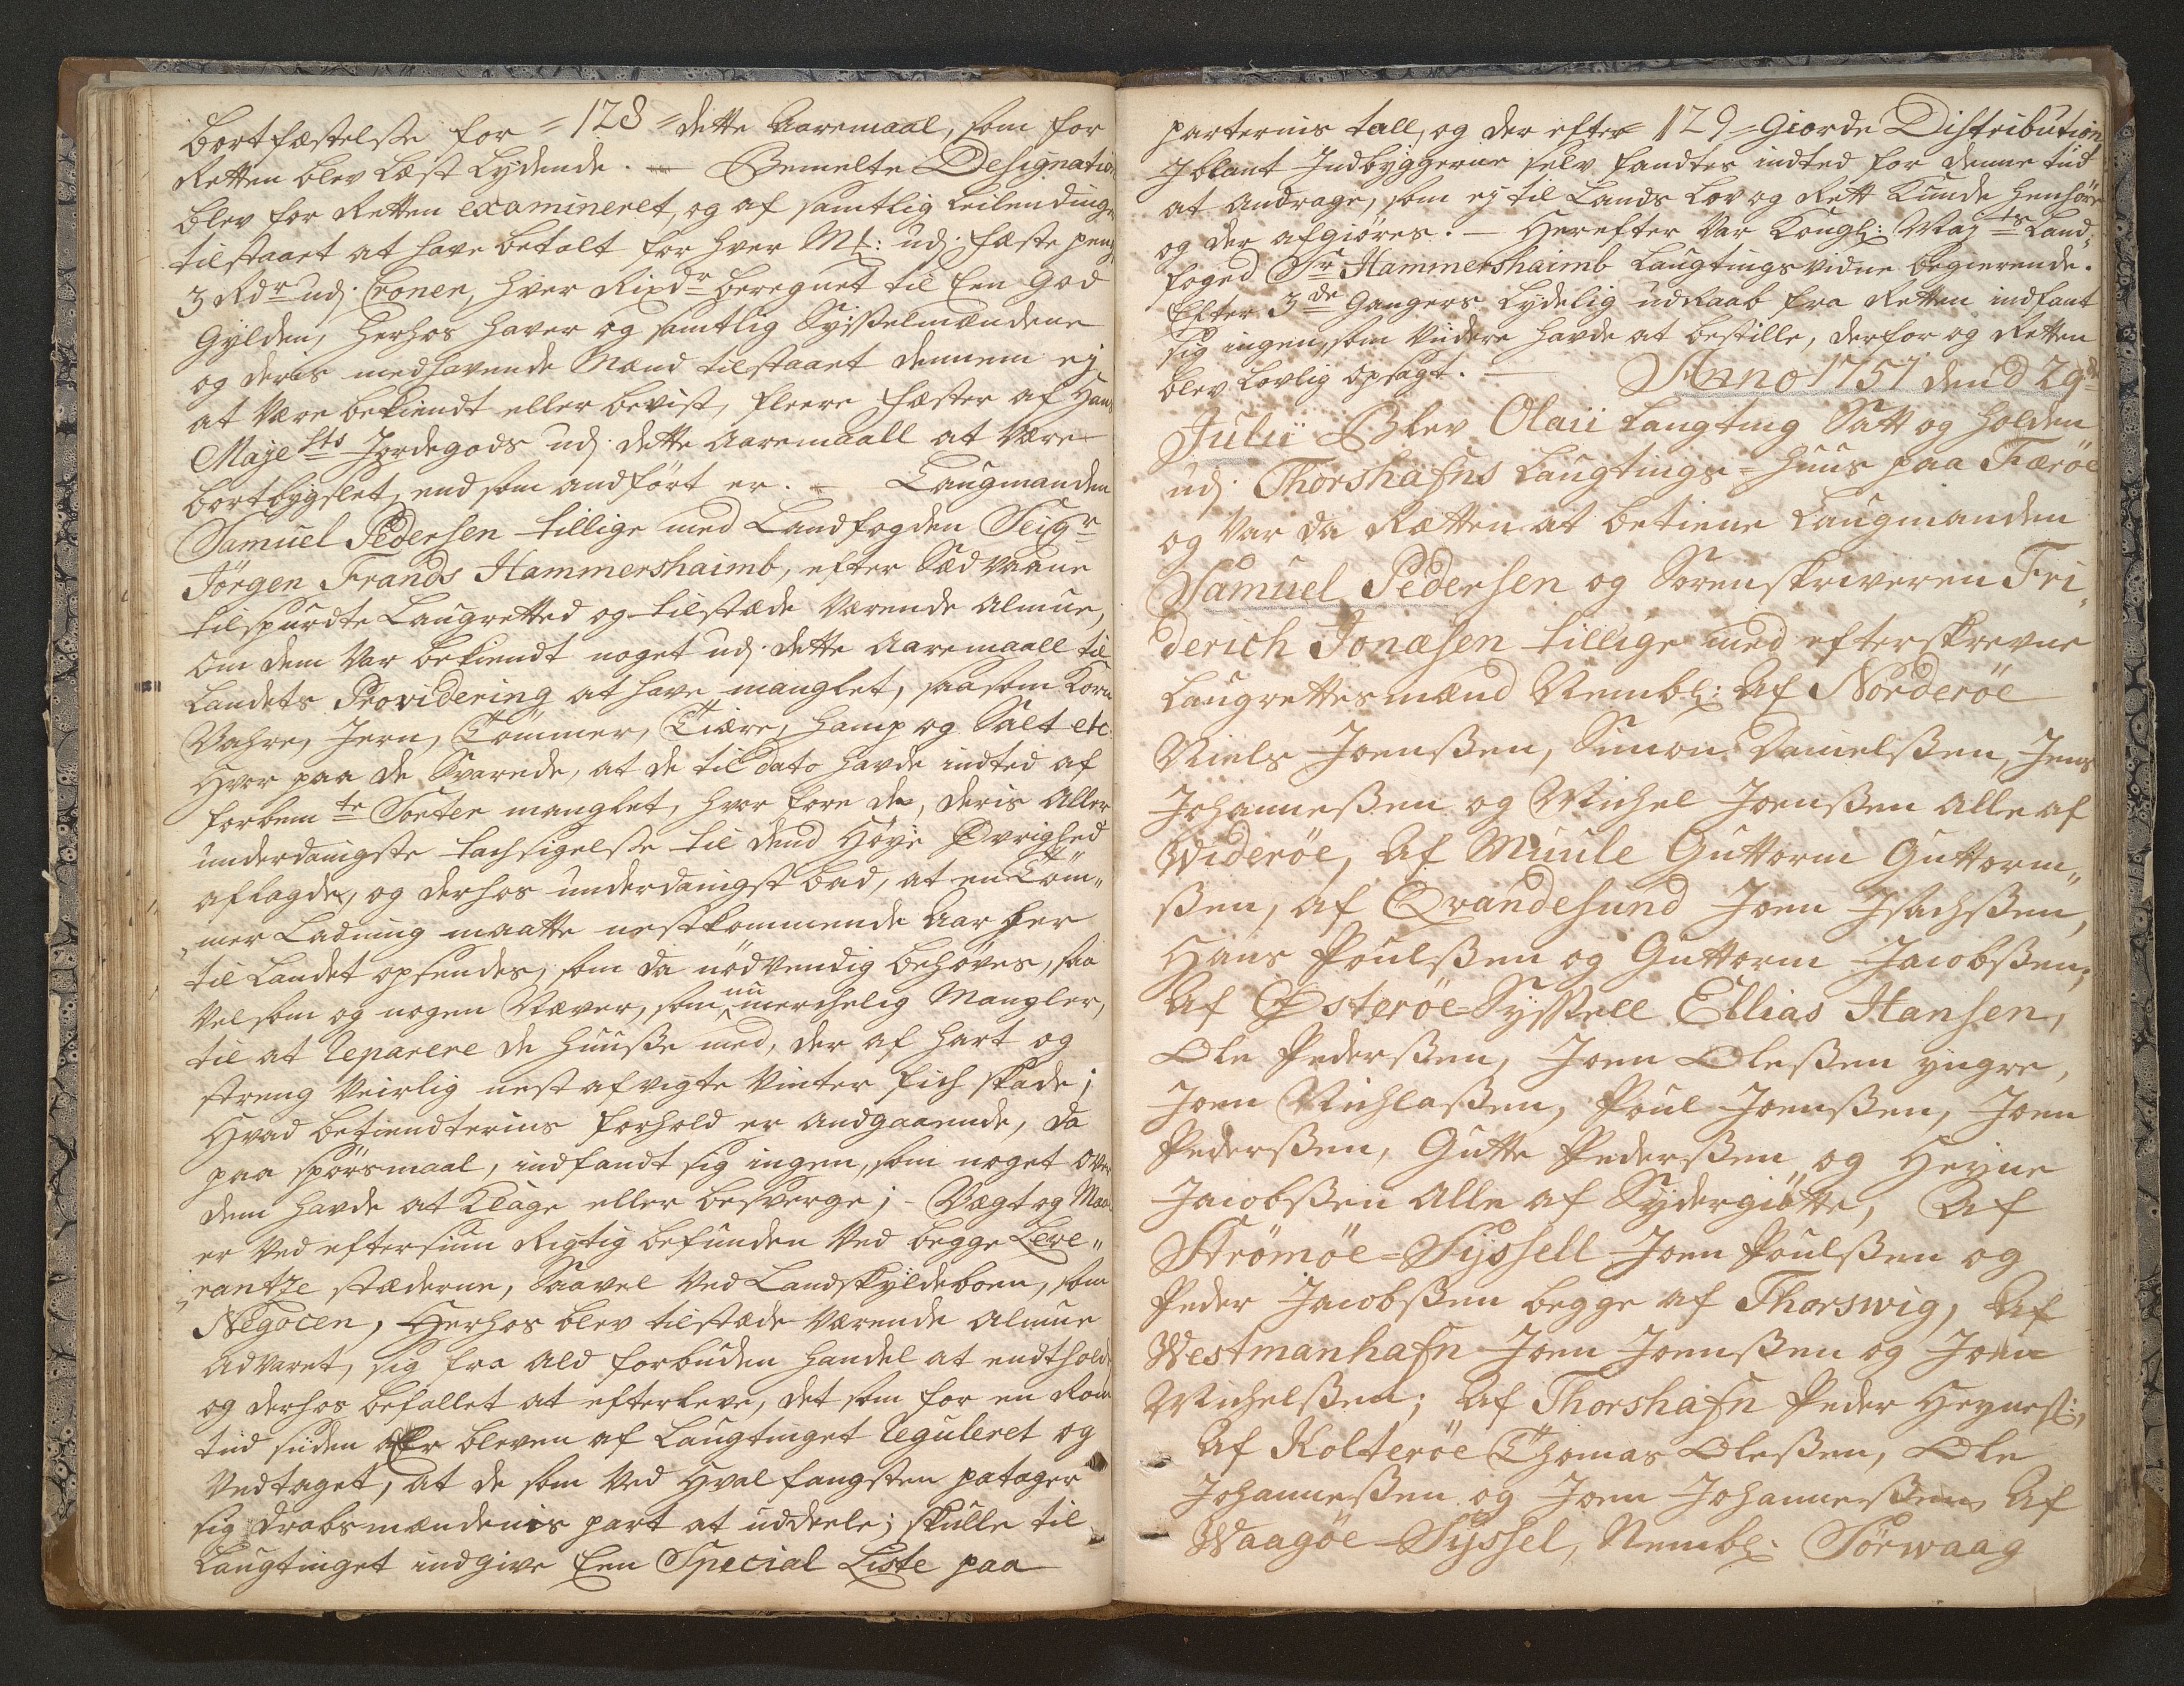 = 128 =
bortfæstelse for dette Aaremaal, som for
Retten blev Læst Lydende. — Bemelte Designation
blev for Retten examineret, og af samtlig Leilendinge
tilstaaet at have betalt for hver Mk: udj fæste peng
3 Rdr udj Croner, hver Rixdr beregnet til Een God
Gylden, herhos haver og samtlig Sysselmændene
og deris medhavende Mænd tilstaaet dennem ej
at være bekiendt eller bevist, fleere fæster af Hans
Majehts Jordegods udj dette Aaremaall at være
bortbygslet, end som andført er. — Laugmanden
Samuel Pedersen tillige med Landfogden Seigr
Jörgen Frands Hammershaimb, efter Sædvaane
tilspurdte Laugretted og tilstæde værende Almue,
om dem var bekiendt noget udj dette Aaremaall til
Landets Providering at have manglet, saasom Korn
Vahre, Jern, Tömmer, Tiære, Hamp og Salt etc.
Hvor paa de Svarede, at de til dato havde indted af
forbemte Sorter manglet, hvor fore de, deris Aller
underdanigste tachsigelse til dend Höye Øvrighed
aflagde, og derhos underdanigst bad, at en Töm„
„mer Ladning maatte nestkommende Aar her
til Landet opsendes, som da nödvendig behöves, saa
vel som og nogen Næver, som nu merchelig Mangler,
til at reparere de Huuse med, der af hart og
streng Veirlig nest afvigte Vinter fich skade;
Hvad betiendternis forhold er andgaaende, da
paa spörsmaal, indfandt sig ingen, som noget over
dem havde at Klage eller besverge; - Vægt og Maal
er ved eftersiun Rigtig befunden ved begge Leve„
„rantze stæderne, Saavel ved Landskyldboen, som
Negocen, Herhos blev tilstæde værende Almue
advaret, sig fra ald forbuden handel at endtholde
og derhos befallet at efterleve, det som for en Rom
tid siiden er bleven af Laugtinget reguleret og
Vedtaget, at de som ved Hvalfangsten patager
sig Drabsmændenis part at uddeele; skulle til
Laugtinget indgive Een Special Liste paa
129
parternis tall, og der efter giorde Distribution,
Jblant Jndbyggerne selv fandtes indted for denne tiid
at andrage, som ej til Lands Lov og Rett Kunde henhöre
og der afgiöres. — Herefter var Kongl: Mayts Land„
foged Sr Hammershaimb Laugtingsvidne begierende.
Efter 3de Gangers Lydelig udRaab fra Retten indfant
sig ingen, som viidere havde at bestille, derfor og Retten
blev Lovlig opsagt. — Anno 1757 dend 29de
Julii Blev Olaii Laugting Satt og holden
udj Thorshafns Laugtings-Huus paa Færöe
og var da Rætten at betiene Laugmanden
Samuel Pedersen og Sorenskriveren Fri„
derich Jonæsen tillige med efterskrevne
Laugrettesmænd Nembl: Af Norderöe
Niels Joensen, Simon Danielsen, Jens
Johannesen og Michel Joensen alle af
Widerøe, Af Muule Guttorm Guttorm„
sen, af Qvandesund Joen Jsachsen,
Hans Poulsen og Guttorm Jacobsen;
Af Østerøe-Syssell Ellias Hansen,
Ole Pedersen, Joen Olesen yngre,
Joen Nichlasen, Poul Joensen, Joen
Pedersen, Gutte Pedersen og Heyne
Jacobsen alle af Sydergiötte, Af
Strömöe-Syssell Joen Poulsen og
Peder Jacobsen begge af Thorswig, Af
Westmanhafn Joen Joensen og Joen
Michelsen; Af Thorshafn Peder Heynes:,
Af Kolteröe Thomas Olesen, Ole
Johannesen og Joen Johannesen Af
Waagöe-Syssel, Nembl: Sörwaag